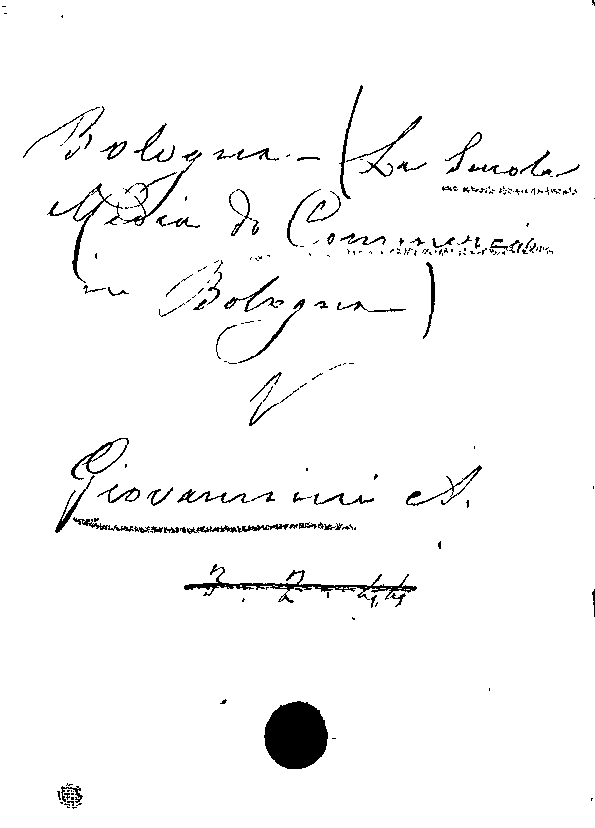 Bologna - (La Scuola
Media di Commercio
in Bologna)
V
Giovannini A.
3. 2. 44